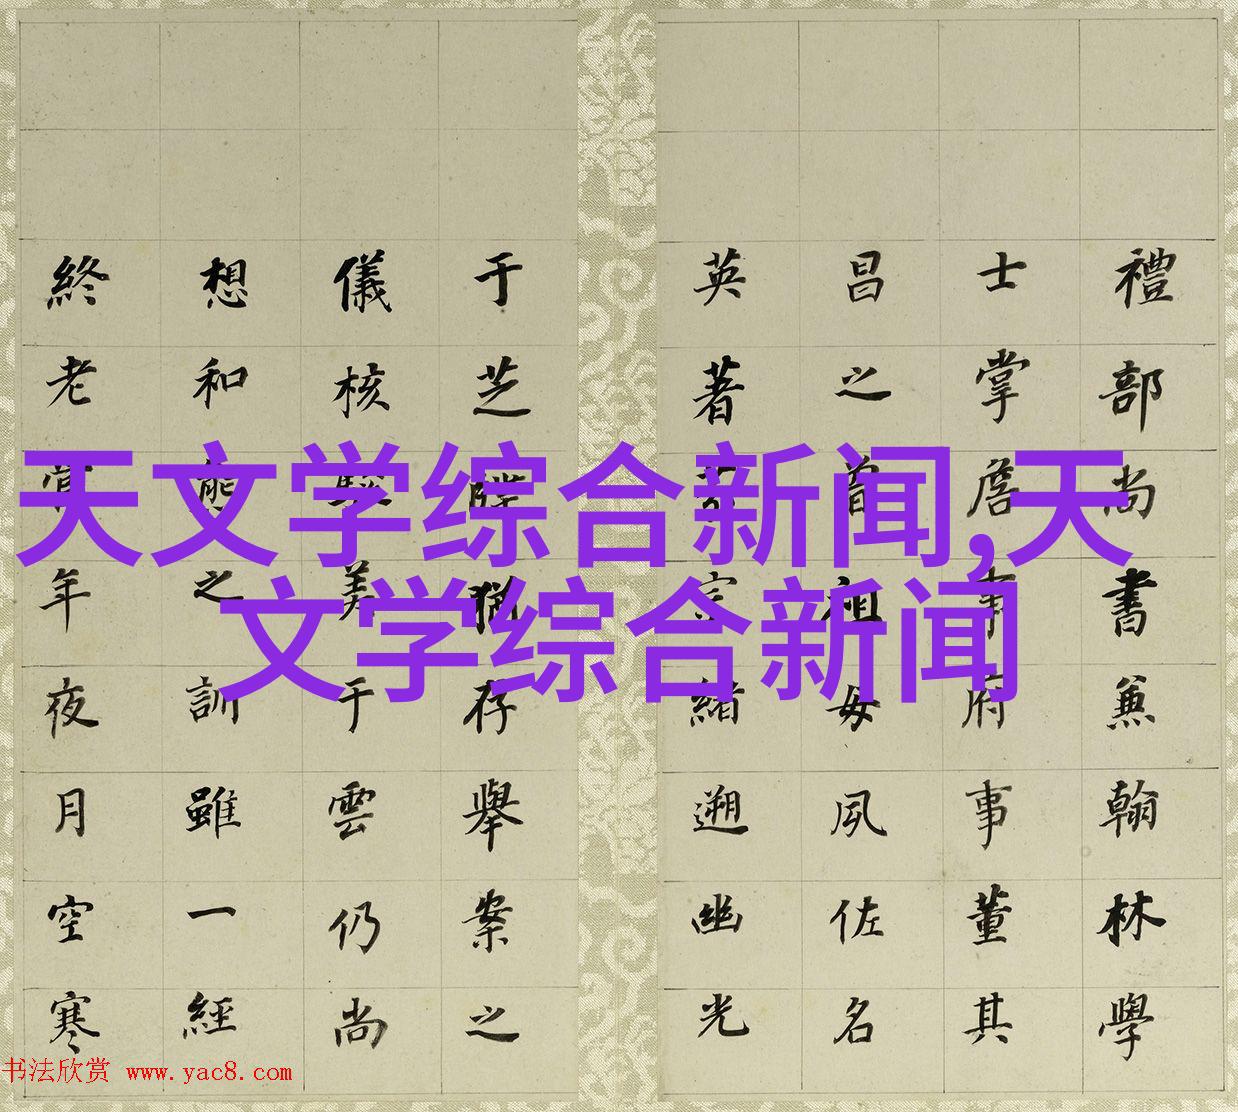 禮部尚書兼翰林學
士掌詹事府事董其
昌之曾祖母夙佐名
英著宗緒遡幽光
于芝猶存舉案之
儀核美于雲仍尚
想和熊之訓雖一經
終老年夜月空寒
天文学综合新闻,天
文学综合新闻
书法欣赏 www.yac8.com